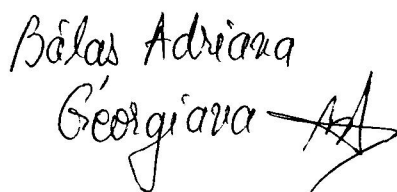 Bálas Adriana
Georgiana